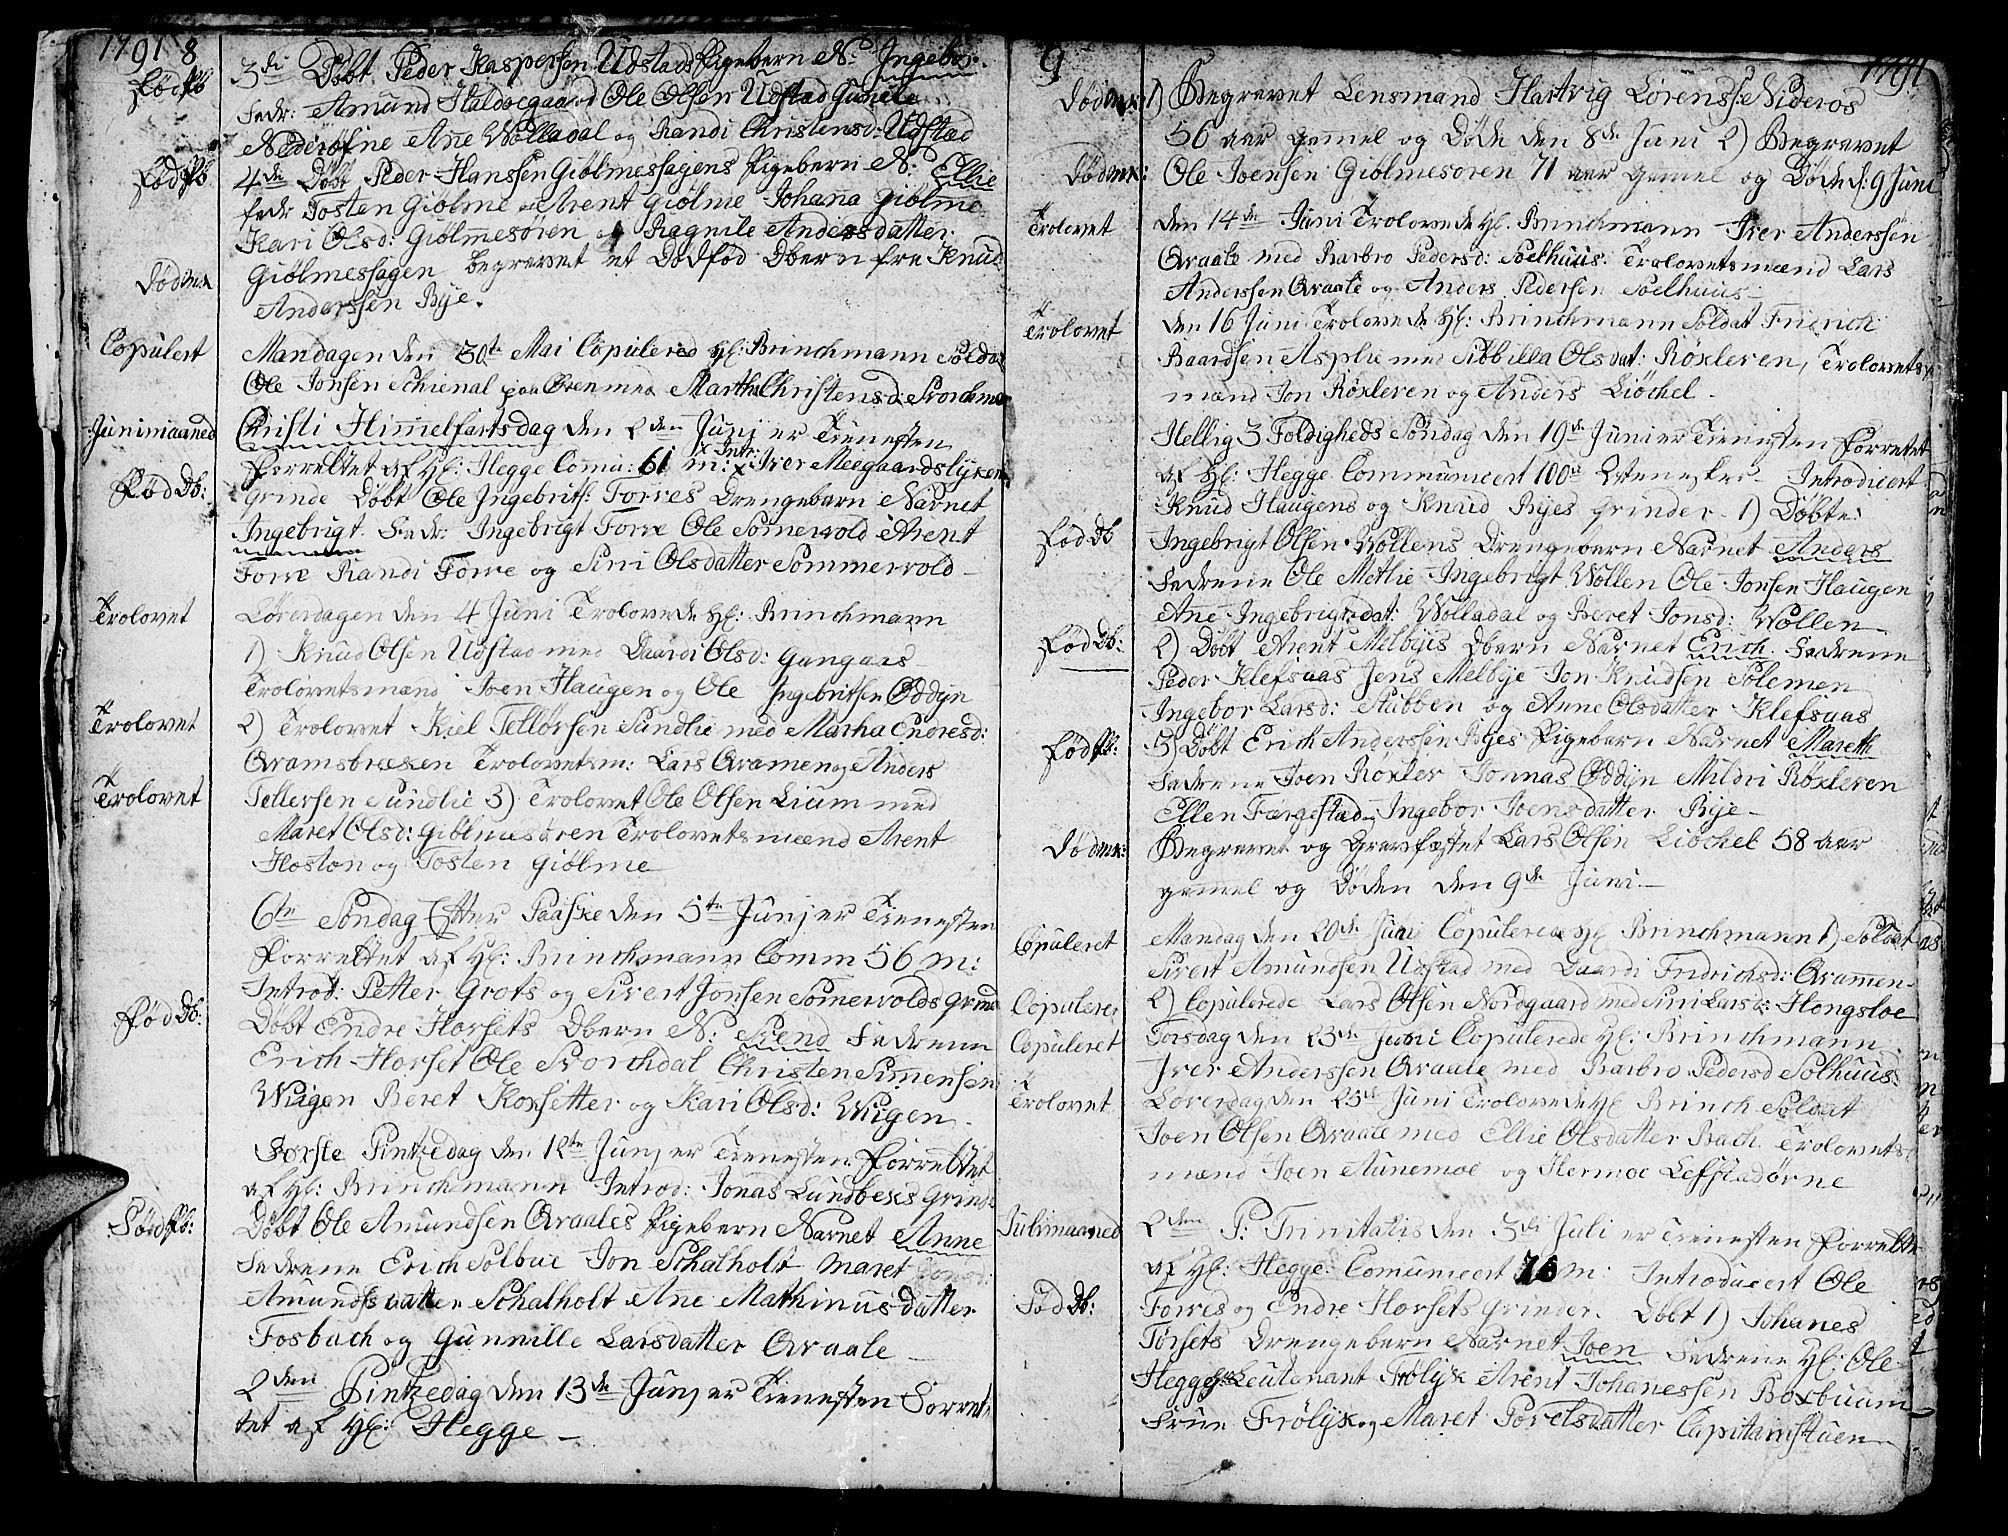 1791 8
Fød Pb
3die Døbt Peder Kaspersen Udstads Pigebern N: Ingebor.
Fadr: Amund Haldsegaard Ole Olsen Udstad Gunile
Nederøfne Ane Wolladal og Randi Christensd: Udstad
Fød Pb
4de Døbt Peder Hanssen Giølmessagens Pigebern N: Ellie
Fadr Tosten Giølme Arent Giølme Johana Giølme
Kari Olsd: Giølmesøren og Ragnile Andersdatter
Død mk
Giølmessagen begravet et Dødfød Dbern fra Knud
Anderssen Rye.
Copulert
Mandagen den 30te Mai Copulered Hl: Brinchmann Soldat
Ole Jonsen Schienal paa Øren med Martha Christensd: Storchmoe
Junimaaned
Christi Himmelfartsdag den 2den Junj er Tienesten
Forrettet af Hl: Hegge Comu: 61 m: x Intr: x Iver Meegaardslyken
Fød Db:
grinde Døbt Ole Ingebrits: Forres Drengebarn Navnet
Ingebrigt Fadr: Ingebrigt Forre Ole Somervold Arent
Forre Randi Forre og Siri Olsdatter Sommervold
Trolovet
Løverdagen den 4 Juni Trolovede Hl: Brinchmann
1) Knud Olsen Udstad med Daardi Olsd: Gangaas
Trolovetsmænd Joen Haugen og Ole Ingebritsen Oddyn
Trolovet
2) Trolovet Kiel Tellefsen Sundlie med Martha Endresd:
Qvamsbrækken Trolovetsm: Lars Qvamen og Anders
Trolovet
Tellefsen Sundlie 3) Trolovet Ole Olsen Lium med
Maret Olsd: Giølmesøren Trolovetsmænd Arent
Hoston og Tosten Giølme
6te Søndag Efter Paaske den 5te Junj er Tienesten
Forrettet af Hl: Brinchmann Comm 56 m:
Introd: Petter Grots og Sivert Jonsen Somervolds grinde
Fød Db:
Døbt Endre Horsets Dbern N: Svend Fadrene
Erich Horset Ole Storchdal Christen Simensen
Wiigen Beret Koxsetter og Kari Olsd: Wiigen.
Første Pintzedag den 12te Junj er Tienesten Forrettet
af Hl: Brinchmann Introd: Jonas Lundbeks grinde
Fød Pb:
Døbt Ole Amundsen Qvaales Pigebern Navnet Anne
Fadrene Erich Solbue Jon Schalholt Maret Jonsd:
Amundsdatter Schalholt Ane Mathinusdatter
Fosbach og Gunnille Larsdatter Qvaale
2den Pintzedag den 13de Junj er Tienesten Forret,
tet af Hl: Hegge
9 1791
Død mk: 1) Begravet Lensmand Hartvig Lørensse Nideros
56 aar gamel og Døde den 8de Juni 2) Begravet
Død mk:
Ole Joensen Giølmesøren 71 aar gamel og Døde d: 9 Juni
Trolovet
den 14de Juni Trolovede Hl. Brinchmann Iver Anderssen
Qvaale med Barbro Pedersd: Soelhuus. Trolovetsmænd Lars
Anderssen Qvaale og Anders Pedersen Soelhuus
Trolovet
den 16 Juni Trolovede Hl: Brinchmann Soldat Fridrich
Baardsen Asplie med Sibbilla Olsdat: Røxleren, Trolovets
mænd Jon Røxleren og Anders Liøchel.
Hellig 3 Foldigheds Søndag den 19de Juni er Tienesten Forrettet
af Hl: Hegge Communicert 100de Mennesker. Introducert
Knud Haugens og Knud Ryes grinder 1) Døbte:
Fød Db
Ingebrigt Olsen Wollens Drengebern Navnet Anders
Fadrene Ole Metlie Ingebrigt Wollen Ole Jonsen Haugen
Ane Ingebrigtsdat: Wolladal og Beret Jonsd: Wollen
Fød Db:
2) Døbt Arent Melbyes Dbern Navnet Erich. Fadrene
Peder Klefsaas Jens Melbye Jon Knudsen Solemen
Ingebor Larsd: Stubben og Anne Olsdatter Klefsaas
Fød Pb:
3) Døbt Erich Anderssen Ryes Pigebern Navnet Mareth
Fadrene Joen Røxler Jonnas Oddyn Mildri Røxleren
Ellen Fargestad Ingebor Joensdatter Rye
Død mk:
Begravet og Gravfæstet Lars Olsen Liøchel 58 aar
gamel og Døden den 9de Juni.
Copuleret
Mandag den 20de Juni Copulerede Hl Brinchmann 1) Soldat
Sivert Amundsen Udstad med Daardi Fridrichsd: Qvammen
Copuleret
2) Copulerede Lars Olsen Nordgaard med Siri Larsd: Hongsloe
Copuleret
Torsdag den 23de Juni Copulerede Hl: Brinchmann
Iver Anderssen Qvaale med Barbro Pedersd Solhuus.
Trolovet
Løverdag den 25de Juni Trolovede Hl Brinch Soldat
Joen Olsen Qvaale med Ellie Olsdatter Bach. Trolovets
mænd Joen Aunemoe og Hermoe Lefstadørne
Julimaaned
2den P: Trinitatis den 3die Juli er Tienesten Forrettet
af Hl: Hegge Comunicert 76 m: Introducert Ole
Fød Db:
Forres og Endre Horsets grinder. Døbt 1) Johanes
Torsets Drengebern Navnet Joen Fadrene Hl: Ole
Hegge Hl: Leutenant Frølyk Arent Johanessen Boxbuum
Frue Frølyk og Maret Povelsdatter Capitainstuen